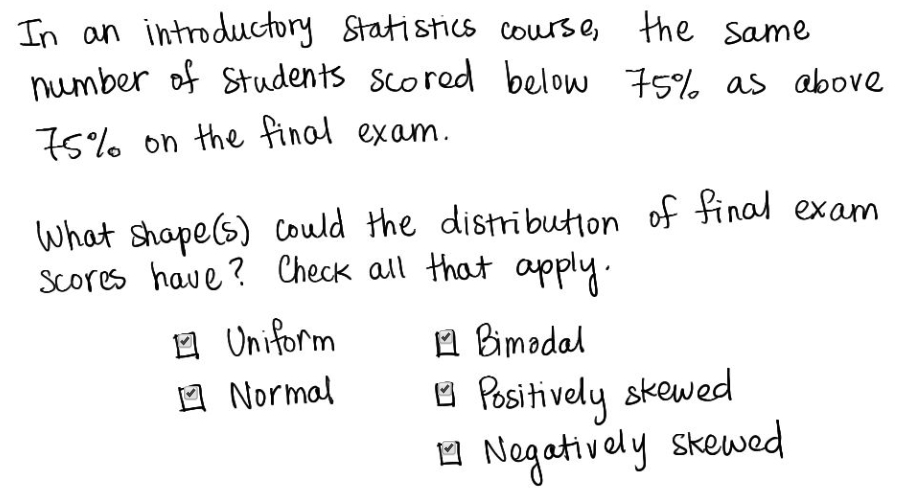 In an introductory Statistics course, the same
number of Students scored below 75% as above
75% on the final exam.
What shape(s) could the distribution of final exam
scores have? Check all that apply.
☑ Uniform ☑ Bimodal
☑ Normal ☑ Positively skewed
☑ Negatively skewed